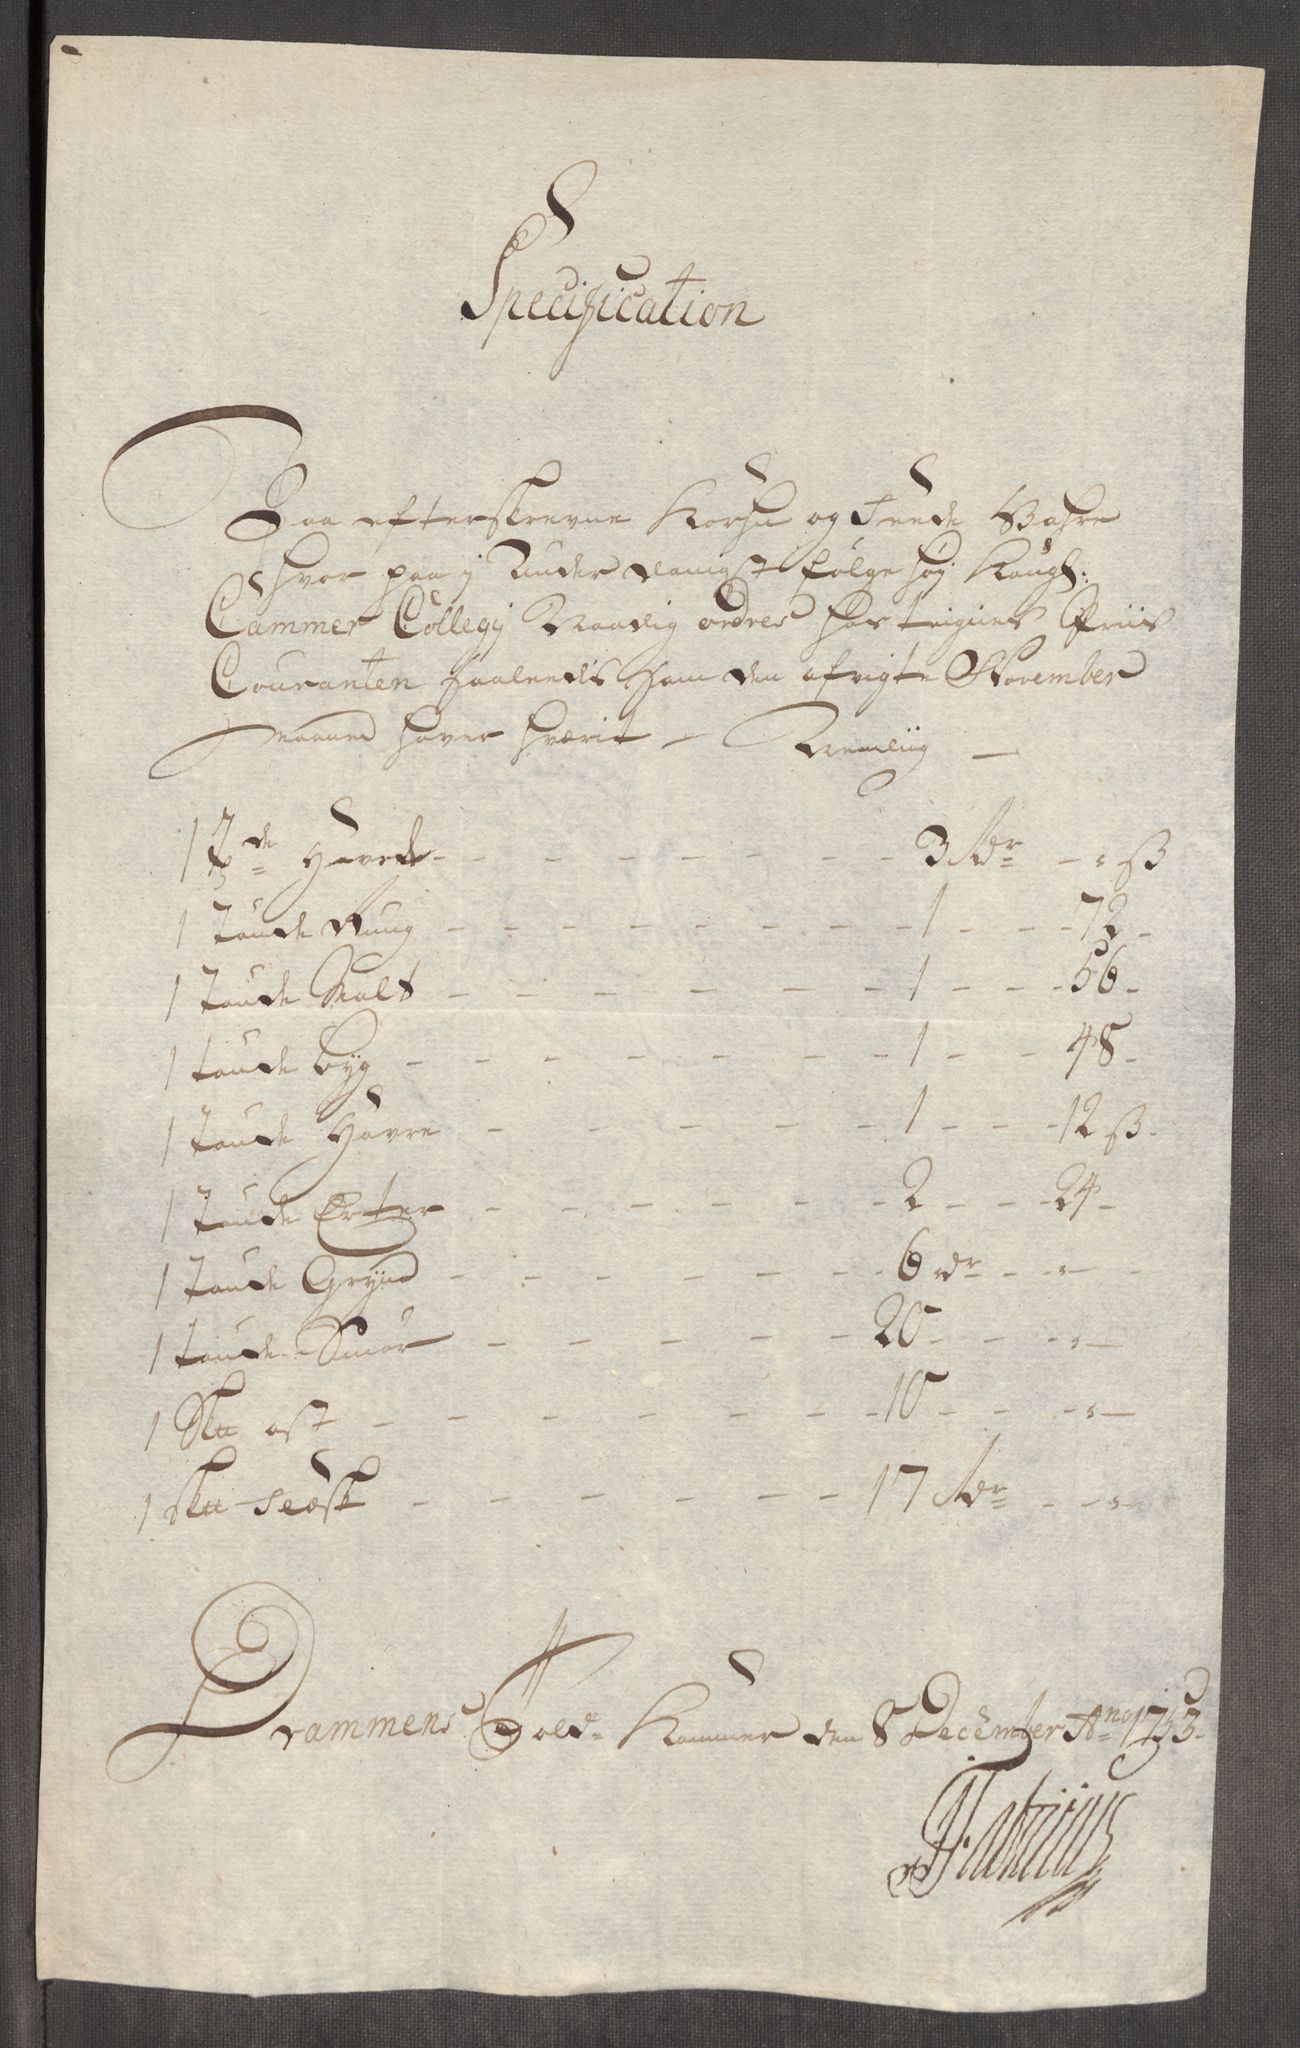 Specification
Paa efterskrevne Korhn og Feede Vahre
hvor paa j Under danigst følge høy Kongl:
Cammer Collegij Naadig ordres hos teignes Priis
Couranten saaledis som den afvigte November
Maaned haver hværit - Nemliig -
1 Tde Hvede - - - 3 Rdr - " ß
1 Tønde Rug - - - 1 - - 72 -
1 Tønde Malt - - - 1 - - 56 -
1 tønde byg - - - 1 - - 48 -
1 Tønde Havre - - - 1 - - 12 ß -
1 Tønde Erter - - - 2 - - 24 -
1 Tønde Gryn - - - 6 rdr - " -
1 tønde Smør - - - 20 - - " -
1 Skt ost - - - 10 - - " -
1 Skt - - - 17 Rdr - - "
Drammens Told-Kammer den 8 December Ano 1733.